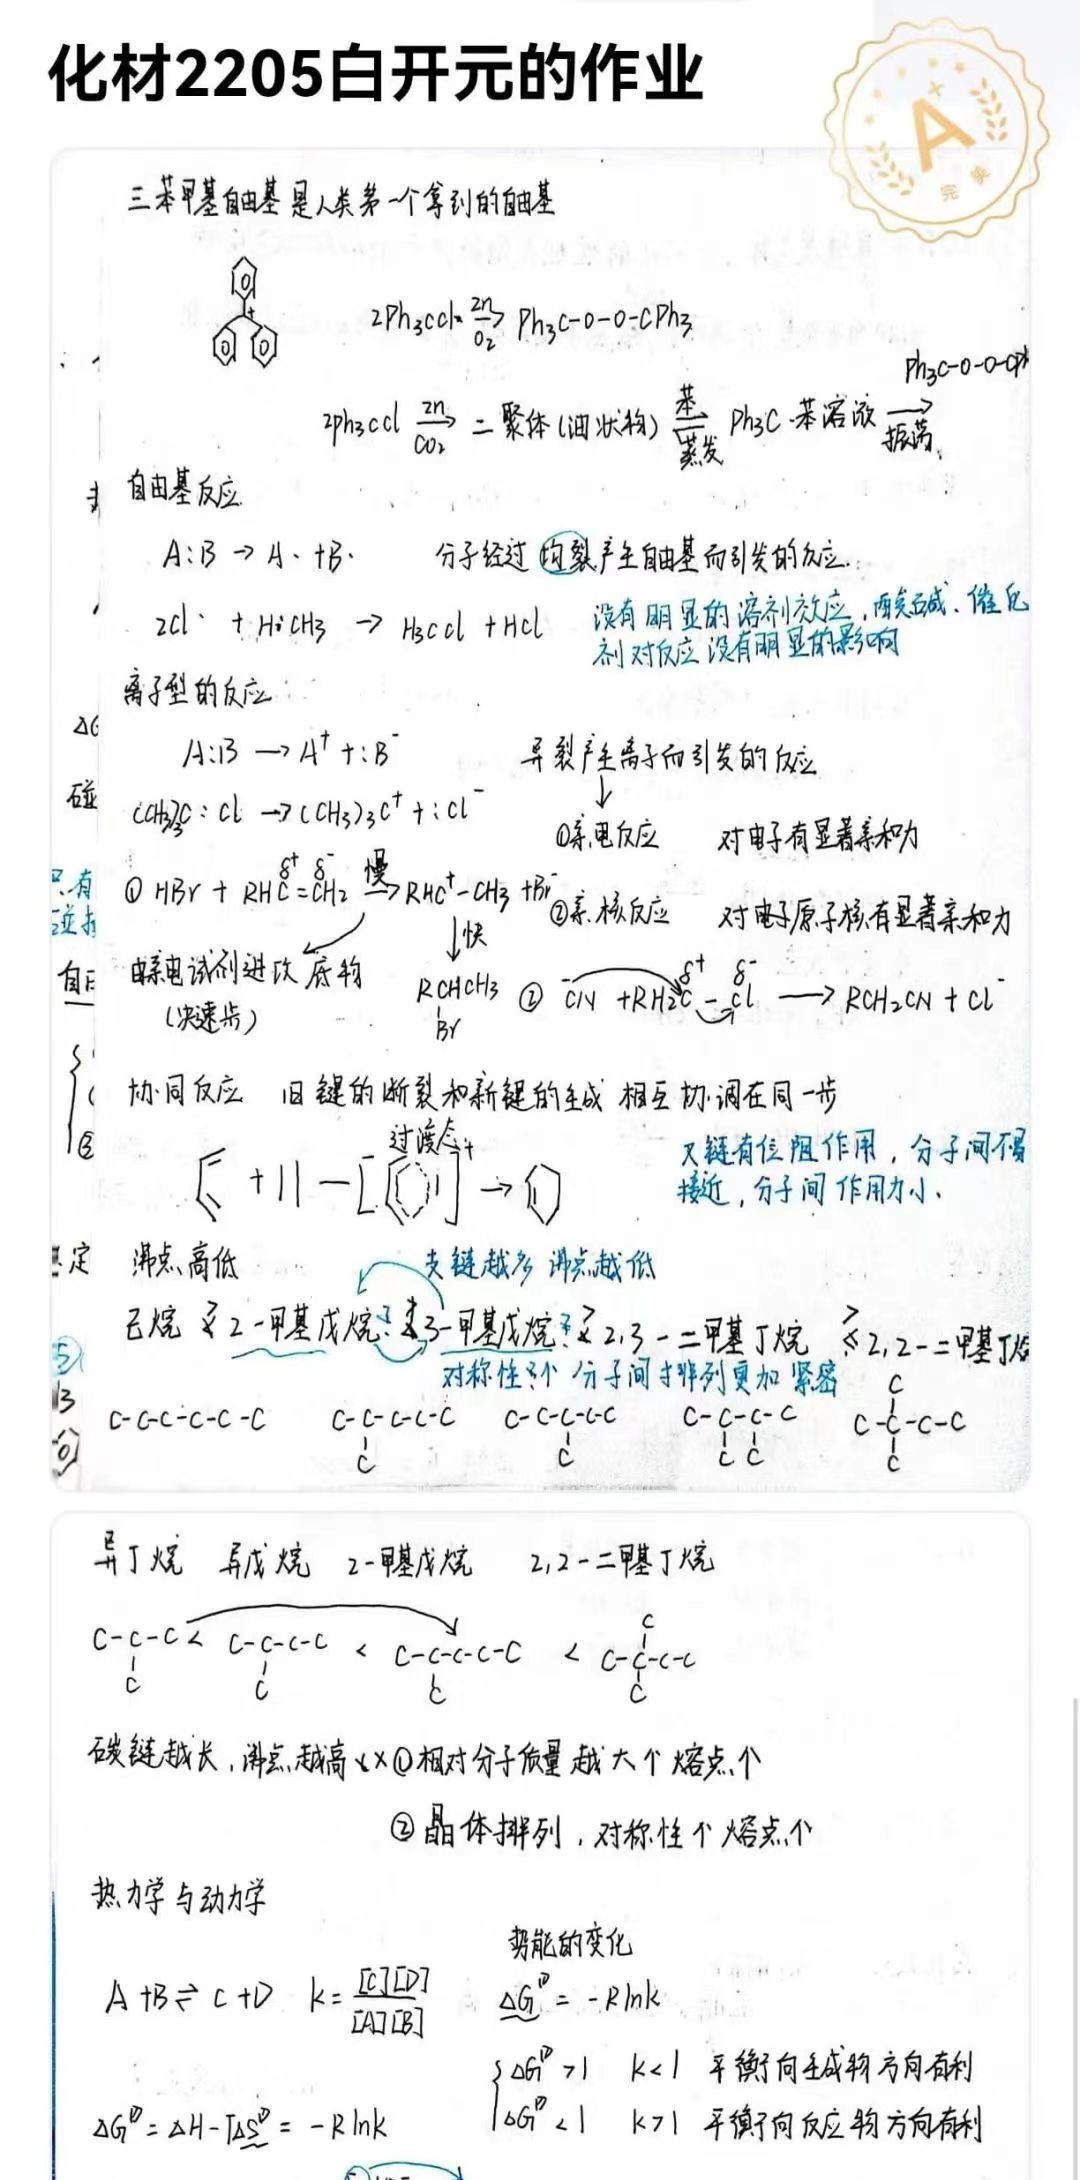 化材2205白开元的作业
A
完美
三苯甲基自由基是人类第一个拿到的自由基
2Ph₃CCl Zn O₂ → Ph₃C-O-O-CPh₃
Ph₃C-O-O-CPh
2Ph₃CCl Zn CO₂ → 二聚体(油状物) 苯 蒸发 Ph₃C·苯溶液 → 振荡
自由基反应
A:B → A· +B· 分子经过均裂产生自由基而引发的反应.
2Cl· + H:CH₃ → H₃CCl + HCl 没有明显的溶剂效应,酸碱、催化
剂对反应没有明显的影响
离子型的反应
A:B → A⁺ + :B⁻ 异裂产生离子而引发的反应
(CH₃)₃C : Cl → (CH₃)₃C⁺ + :Cl⁻
①亲电反应 对电子有显著亲和力
① HBr + RHC=CH₂ 慢 → RHC⁺-CH₃ +Br⁻
δ⁺ δ⁻
②亲核反应 对电子原子核有显著亲和力
↓快
由亲电试剂进攻底物
(决速步)
RCHCH₃
Br
② ⁻CN + RH₂C-Cl → RCH₂CN + Cl⁻
δ⁺ δ⁻
协同反应 旧键的断裂和新键的生成相互协调在同一步
过渡态
支链有位阻作用,分子间不易
接近,分子间作用力小、
沸点高低 支链越多 沸点越低
己烷 2-甲基戊烷 3-甲基戊烷 2,3-二甲基丁烷 2,2-二甲基丁烷
对称性 分子间排列更加紧密
C-C-C-C-C-C C-C-C-C-C C-C-C-C-C C-C-C-C C-C-C-C
C C C C C C
异丁烷 异戊烷 2-甲基戊烷 2,2-二甲基丁烷
C-C-C < C-C-C-C < C-C-C-C-C < C-C-C-C
C C C C C
碳链越长,沸点越高 ①相对分子质量越大↑熔点↑
②晶体排列,对称性↑熔点↑
热力学与动力学
势能的变化
A+B⇌C+D K=[C][D]/[A][B] ΔG° = -Rlnk
ΔG°>1 k<1 平衡于向生成物方向有利
ΔG°<1 k>1 平衡于向反应物方向有利
ΔG°=ΔH-TΔS°= -Rlnk